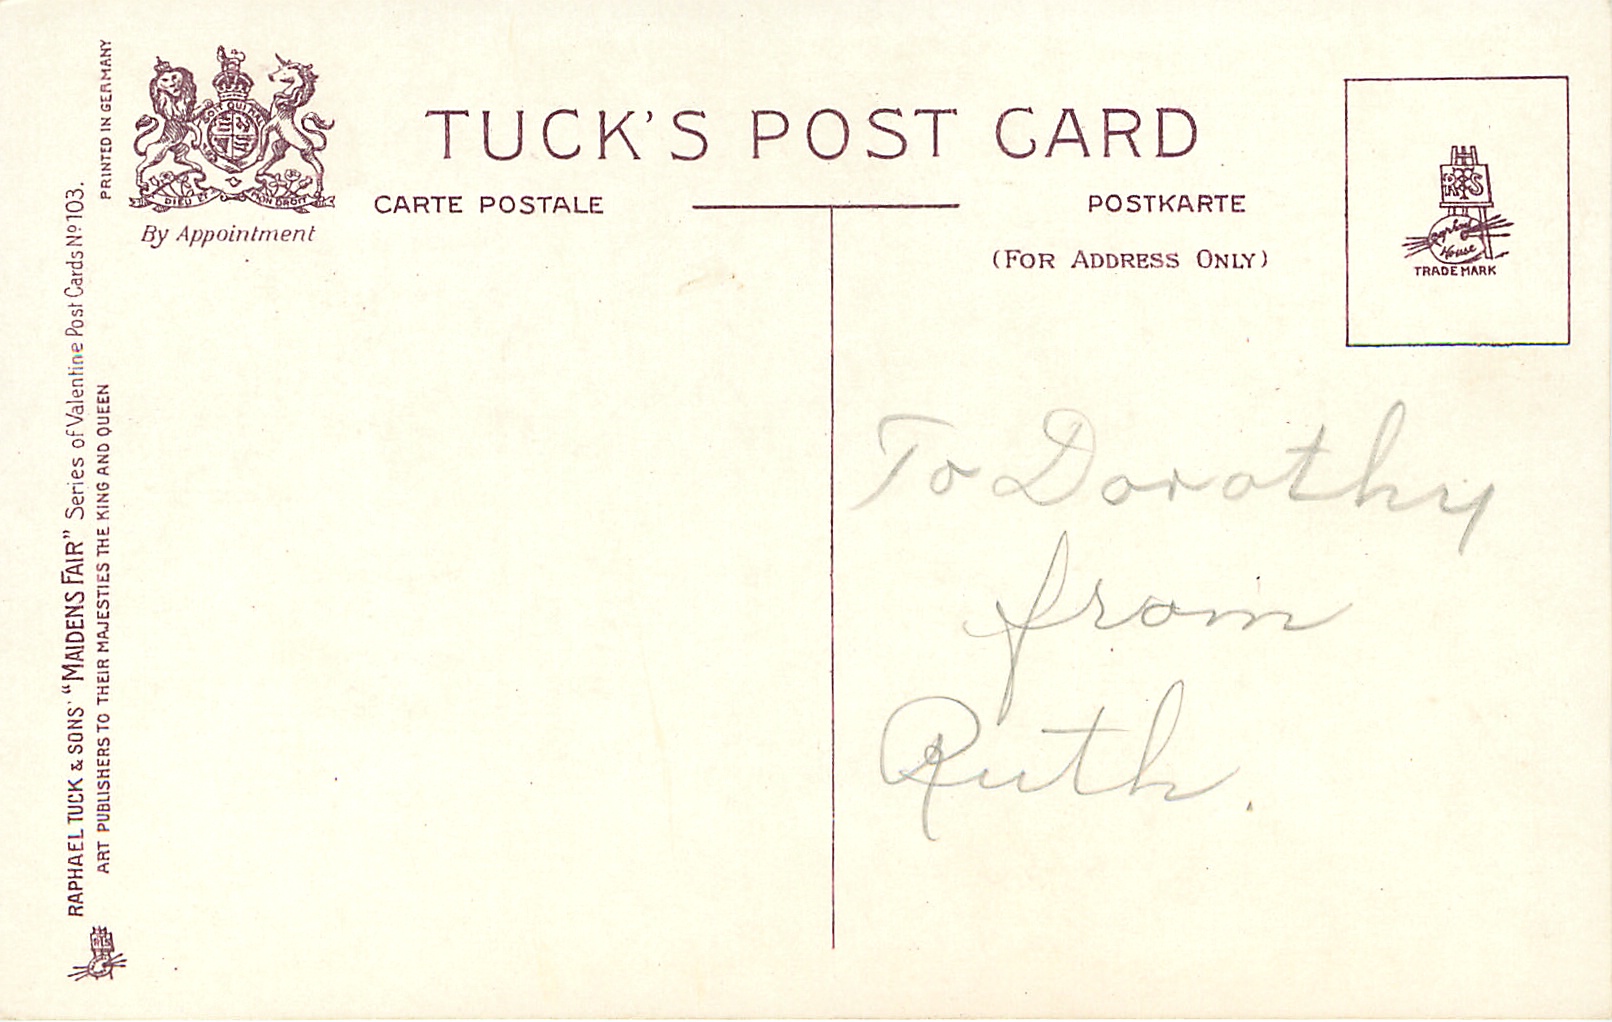 PRINTED IN GERMANY
RAPHAEL TUCK & SONS' "MAIDENS FAIR" Series of Valentine Post Cards Nº 103.
ART PUBLISHERS TO THEIR MAJESTIES THE KING AND QUEEN
DIEU ET MON DROIT
By Appointment
TUCK'S POST CARD
CARTE POSTALE
POSTKARTE
(FOR ADDRESS ONLY)
House
TRADE MARK
To Dorothy
from
Ruth.